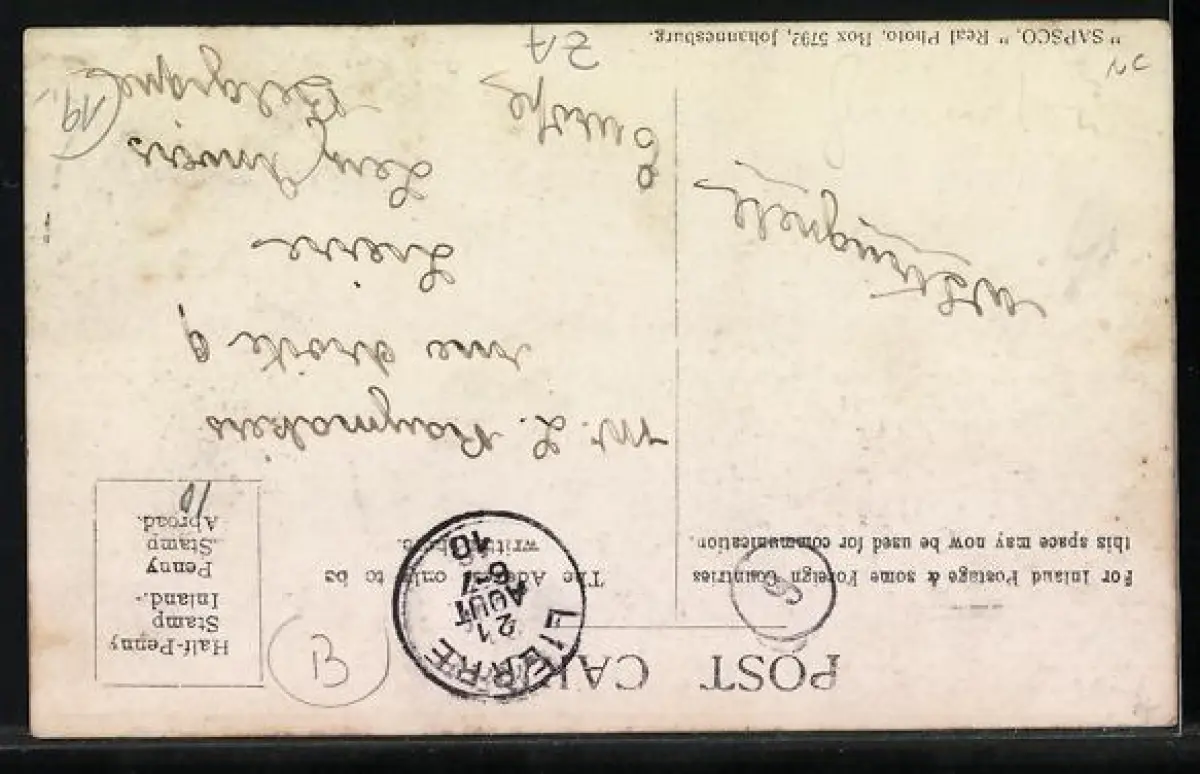 POST CARD
For Inland Postage & some Foreign Countries
this space may now be used for communication.
The Address only to be
written here.
Half-Penny
Stamp
Inland.
Penny
Stamp
Abroad.
10
LIERRE
21
AOUT
6-7
10
B
6
Mr. L. Raymakers
rue droite 9
Lierre
Lez Anvers
Belgique
Europe
ZA
(19.-
"SAPSCO," Real Photo, Box 5792, Johannesburg.